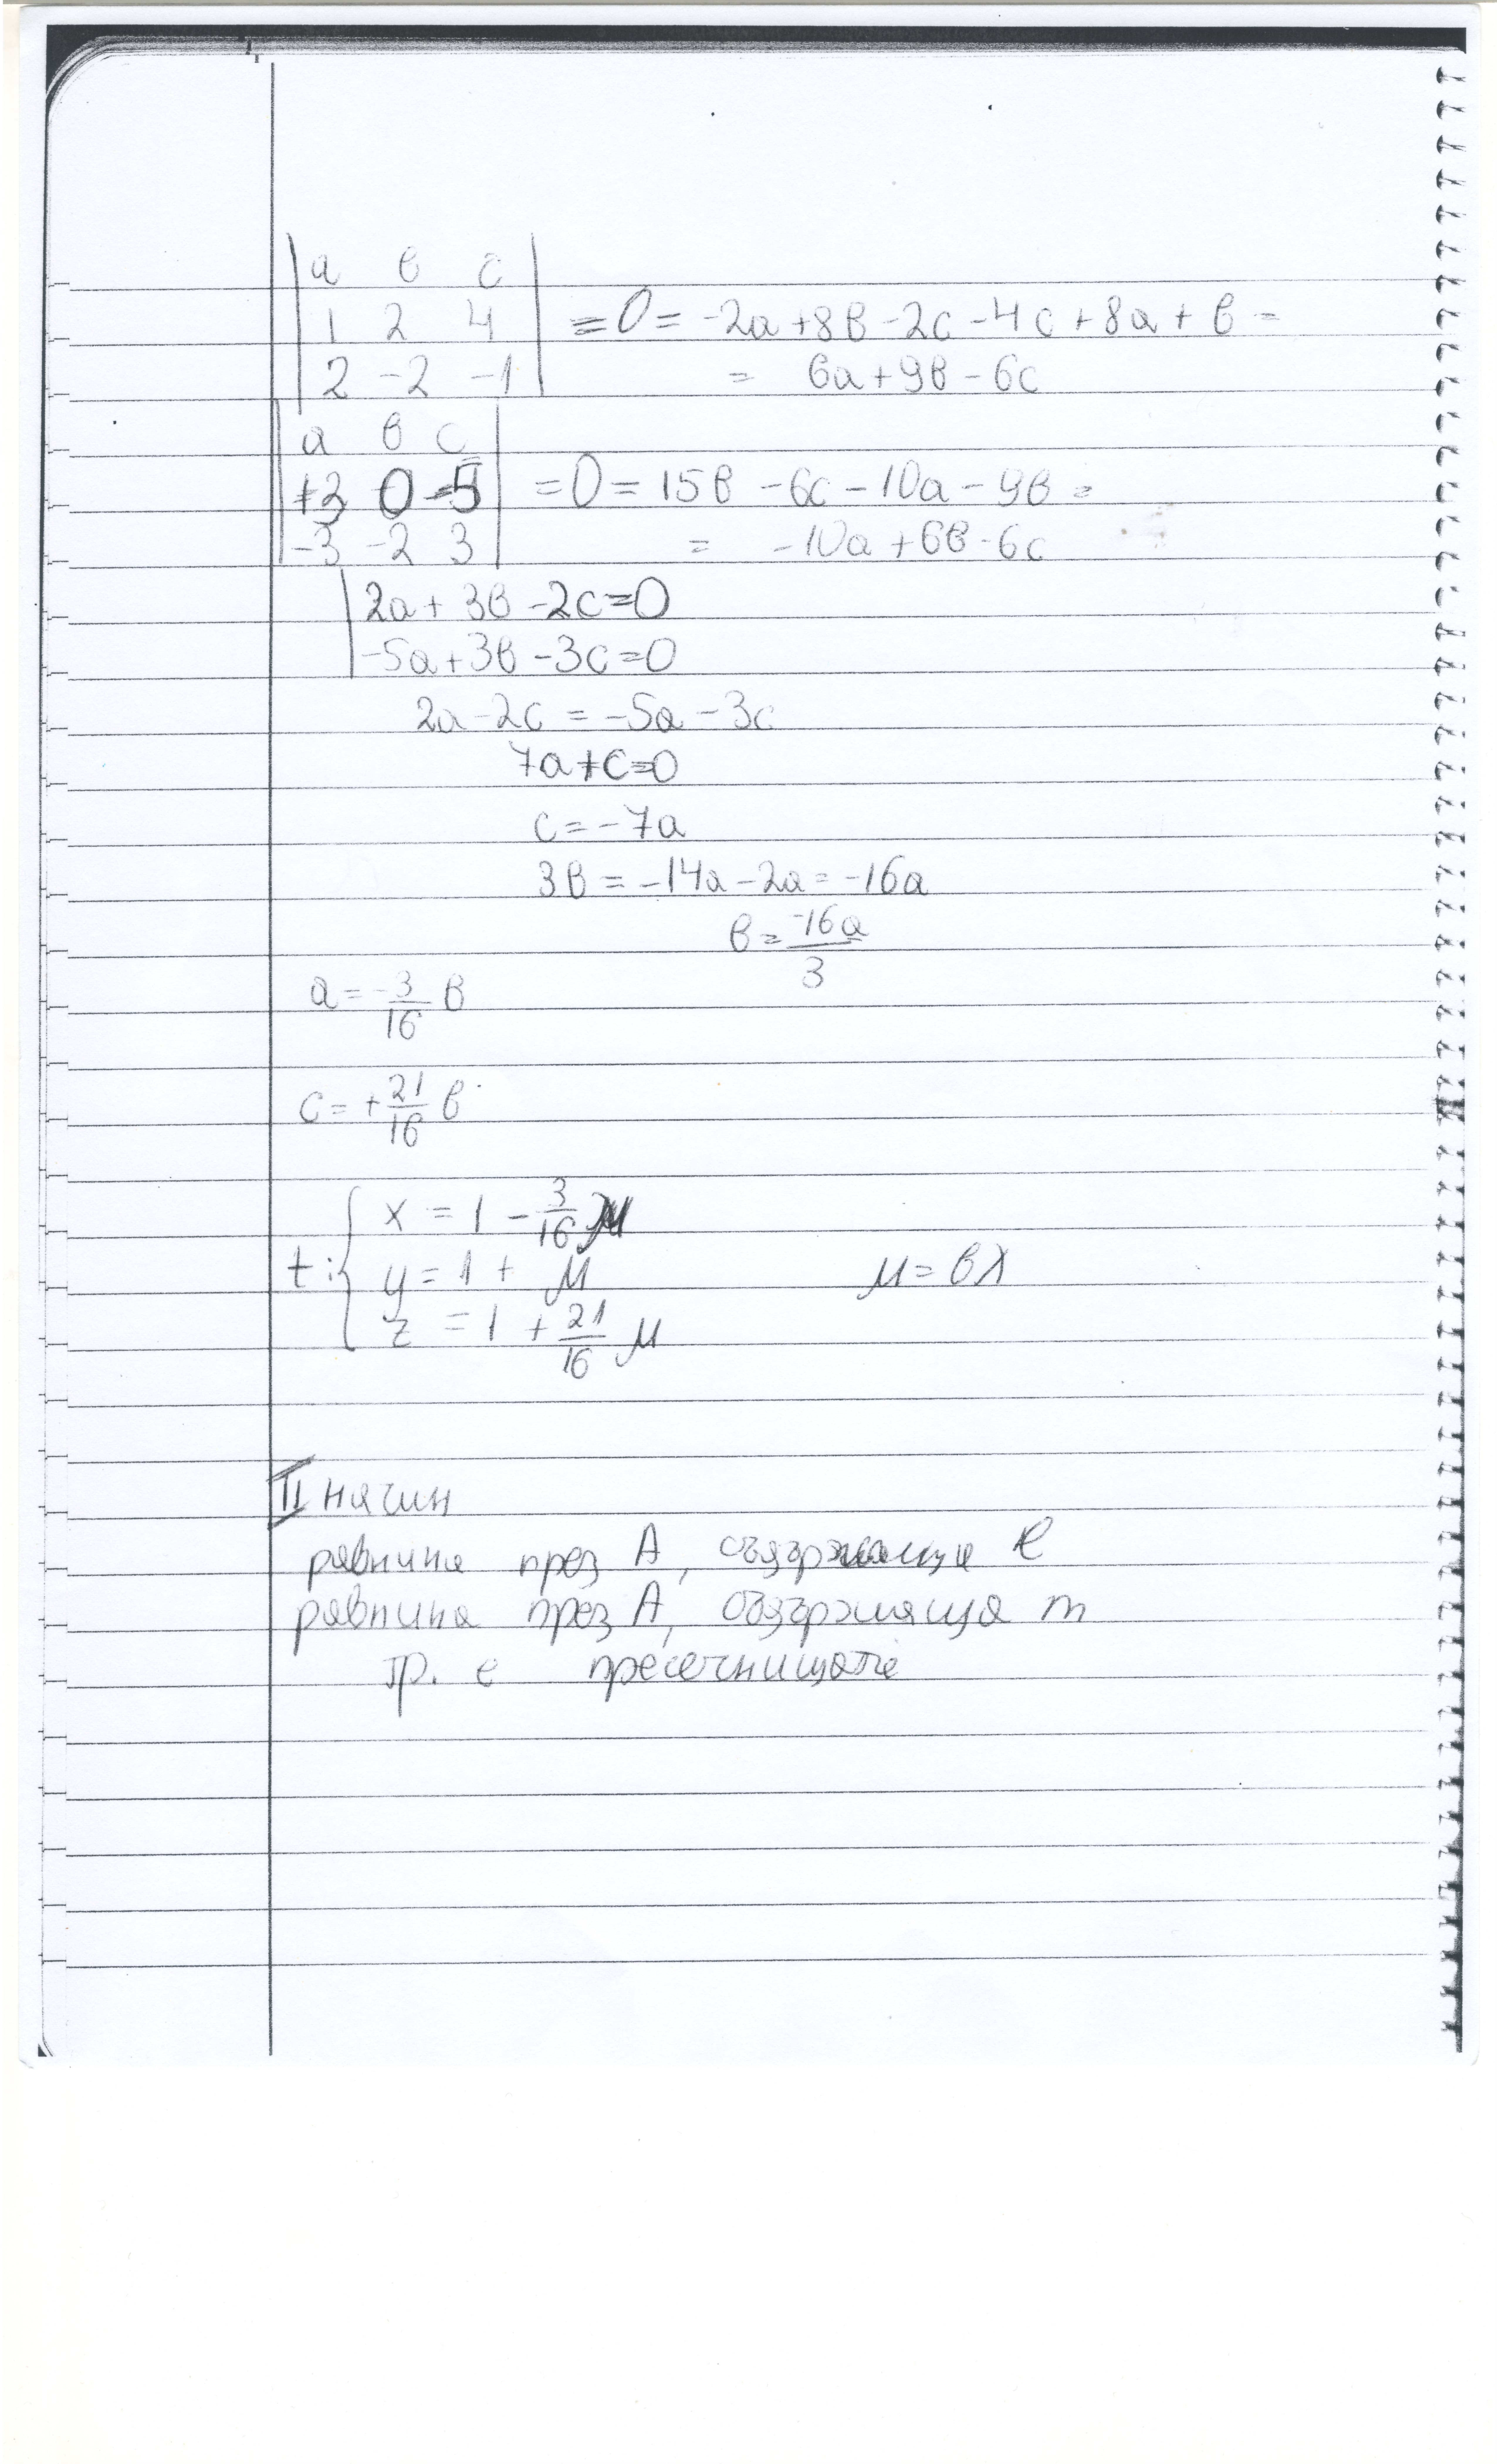 | a в c |
| 1 2 4 | = 0 = -2a + 8в - 2c - 4c + 8a + в =
| 2 -2 -1 | = 6a + 9в - 6c
| a в c |
| +3 0 -5 | = 0 = 15в - 6c - 10a - 9в =
| -3 -2 3 | = -10a + 6в - 6c
| 2a + 3в - 2c = 0
| -5a + 3в - 3c = 0
2a - 2c = -5a - 3c
7a + c = 0
c = -7a
3в = -14a - 2a = -16a
в = -16a/3
a = -3/16 в
c = +21/16 в
t: { x = 1 - 3/16 μ
y = 1 + μ μ = вλ
z = 1 + 21/16 μ
II начин
равнина през A, съдържаща l
равнина през A, съдържаща m
тр. е пресечницата